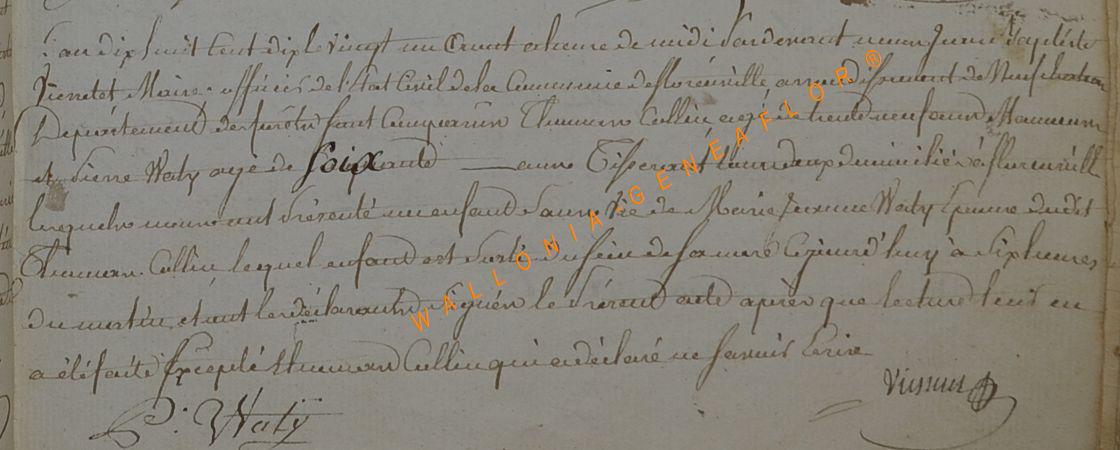 L'an dix huit cent dix le vingt un aoust a heure de midi Pardevant nous Jean Baptiste
Pierret Maire officier de l'état Civil de la Commune de florenville arrondissement de Neufchateau
Département des forêts sont Comparus Thomas Collin agé de trente neuf ans Manouvrier
et Pierre Waty agé de soixante ans Tisserant tous deux domiciliés a florenville
lesquels nous ont présenté un enfant de Marie Jeanne Waty Epouse dudit
Thomas Collin lequel enfant est sorti du sein de sa mere Cejourd'huy à six heures
du matin, et ont les déclarants signés le présent acte après que lecture leur en
a été faite Excepté Thomas Collin qui a déclaré ne savoir Ecrire
P: Waty
WALLONIA GENEAFLOR ®